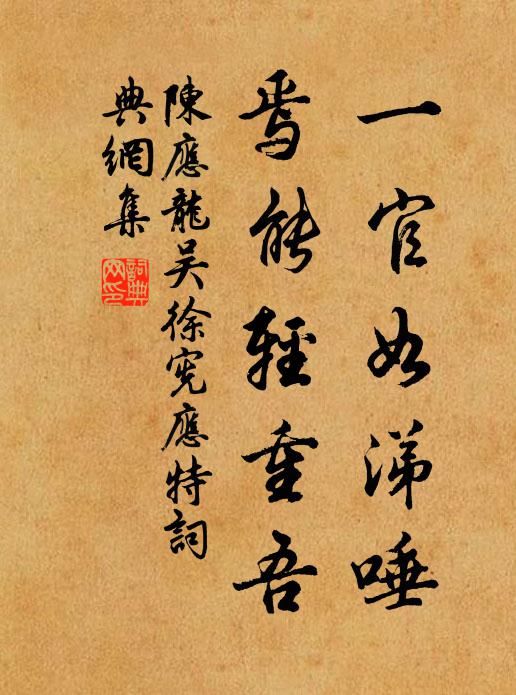 一官如涕唾
焉能輕重吾
陳應龍吳徐寃應特詞
典網集
詞典
網印